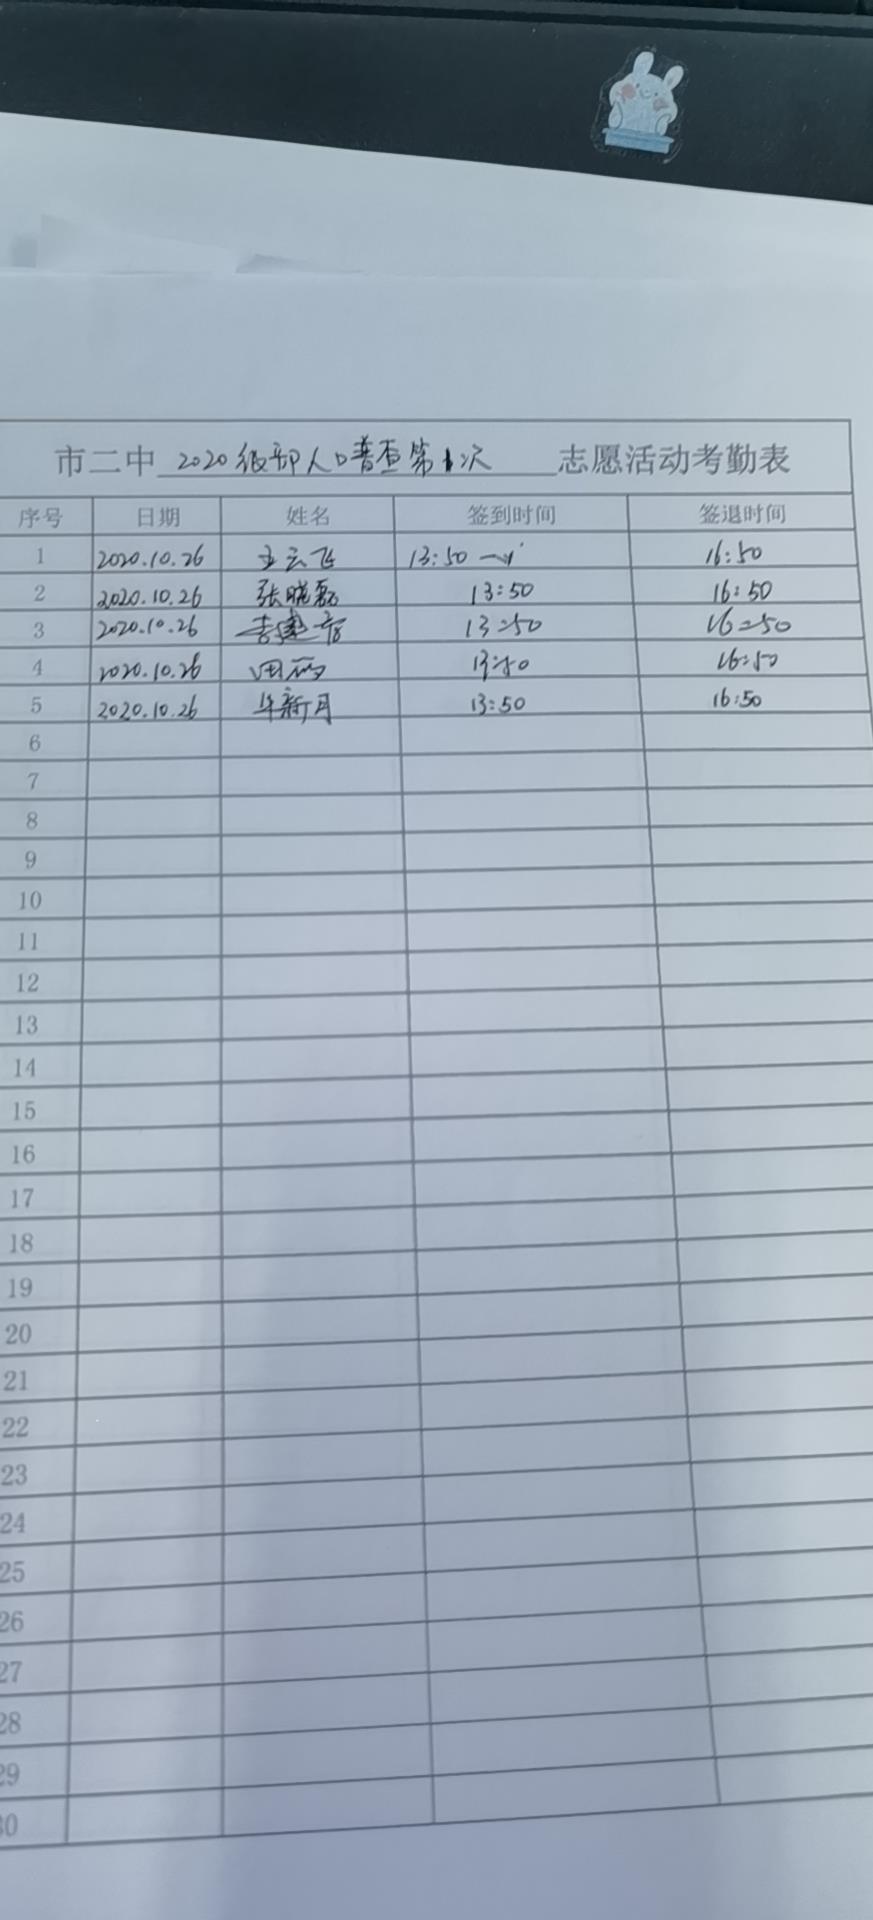 市二中 2020级部人口普查第1次 志愿活动考勤表
序号 日期 姓名 签到时间 签退时间
1 2020.10.26 王云飞 13:50 16:50
2 2020.10.26 张晓磊 13:50 16:50
3 2020.10.26 13:50 16:50
4 2020.10.26 13:50 16:50
5 2020.10.26 华新月 13:50 16:50
6
7
8
9
10
11
12
13
14
15
16
17
18
19
20
21
22
23
24
25
26
27
28
29
30